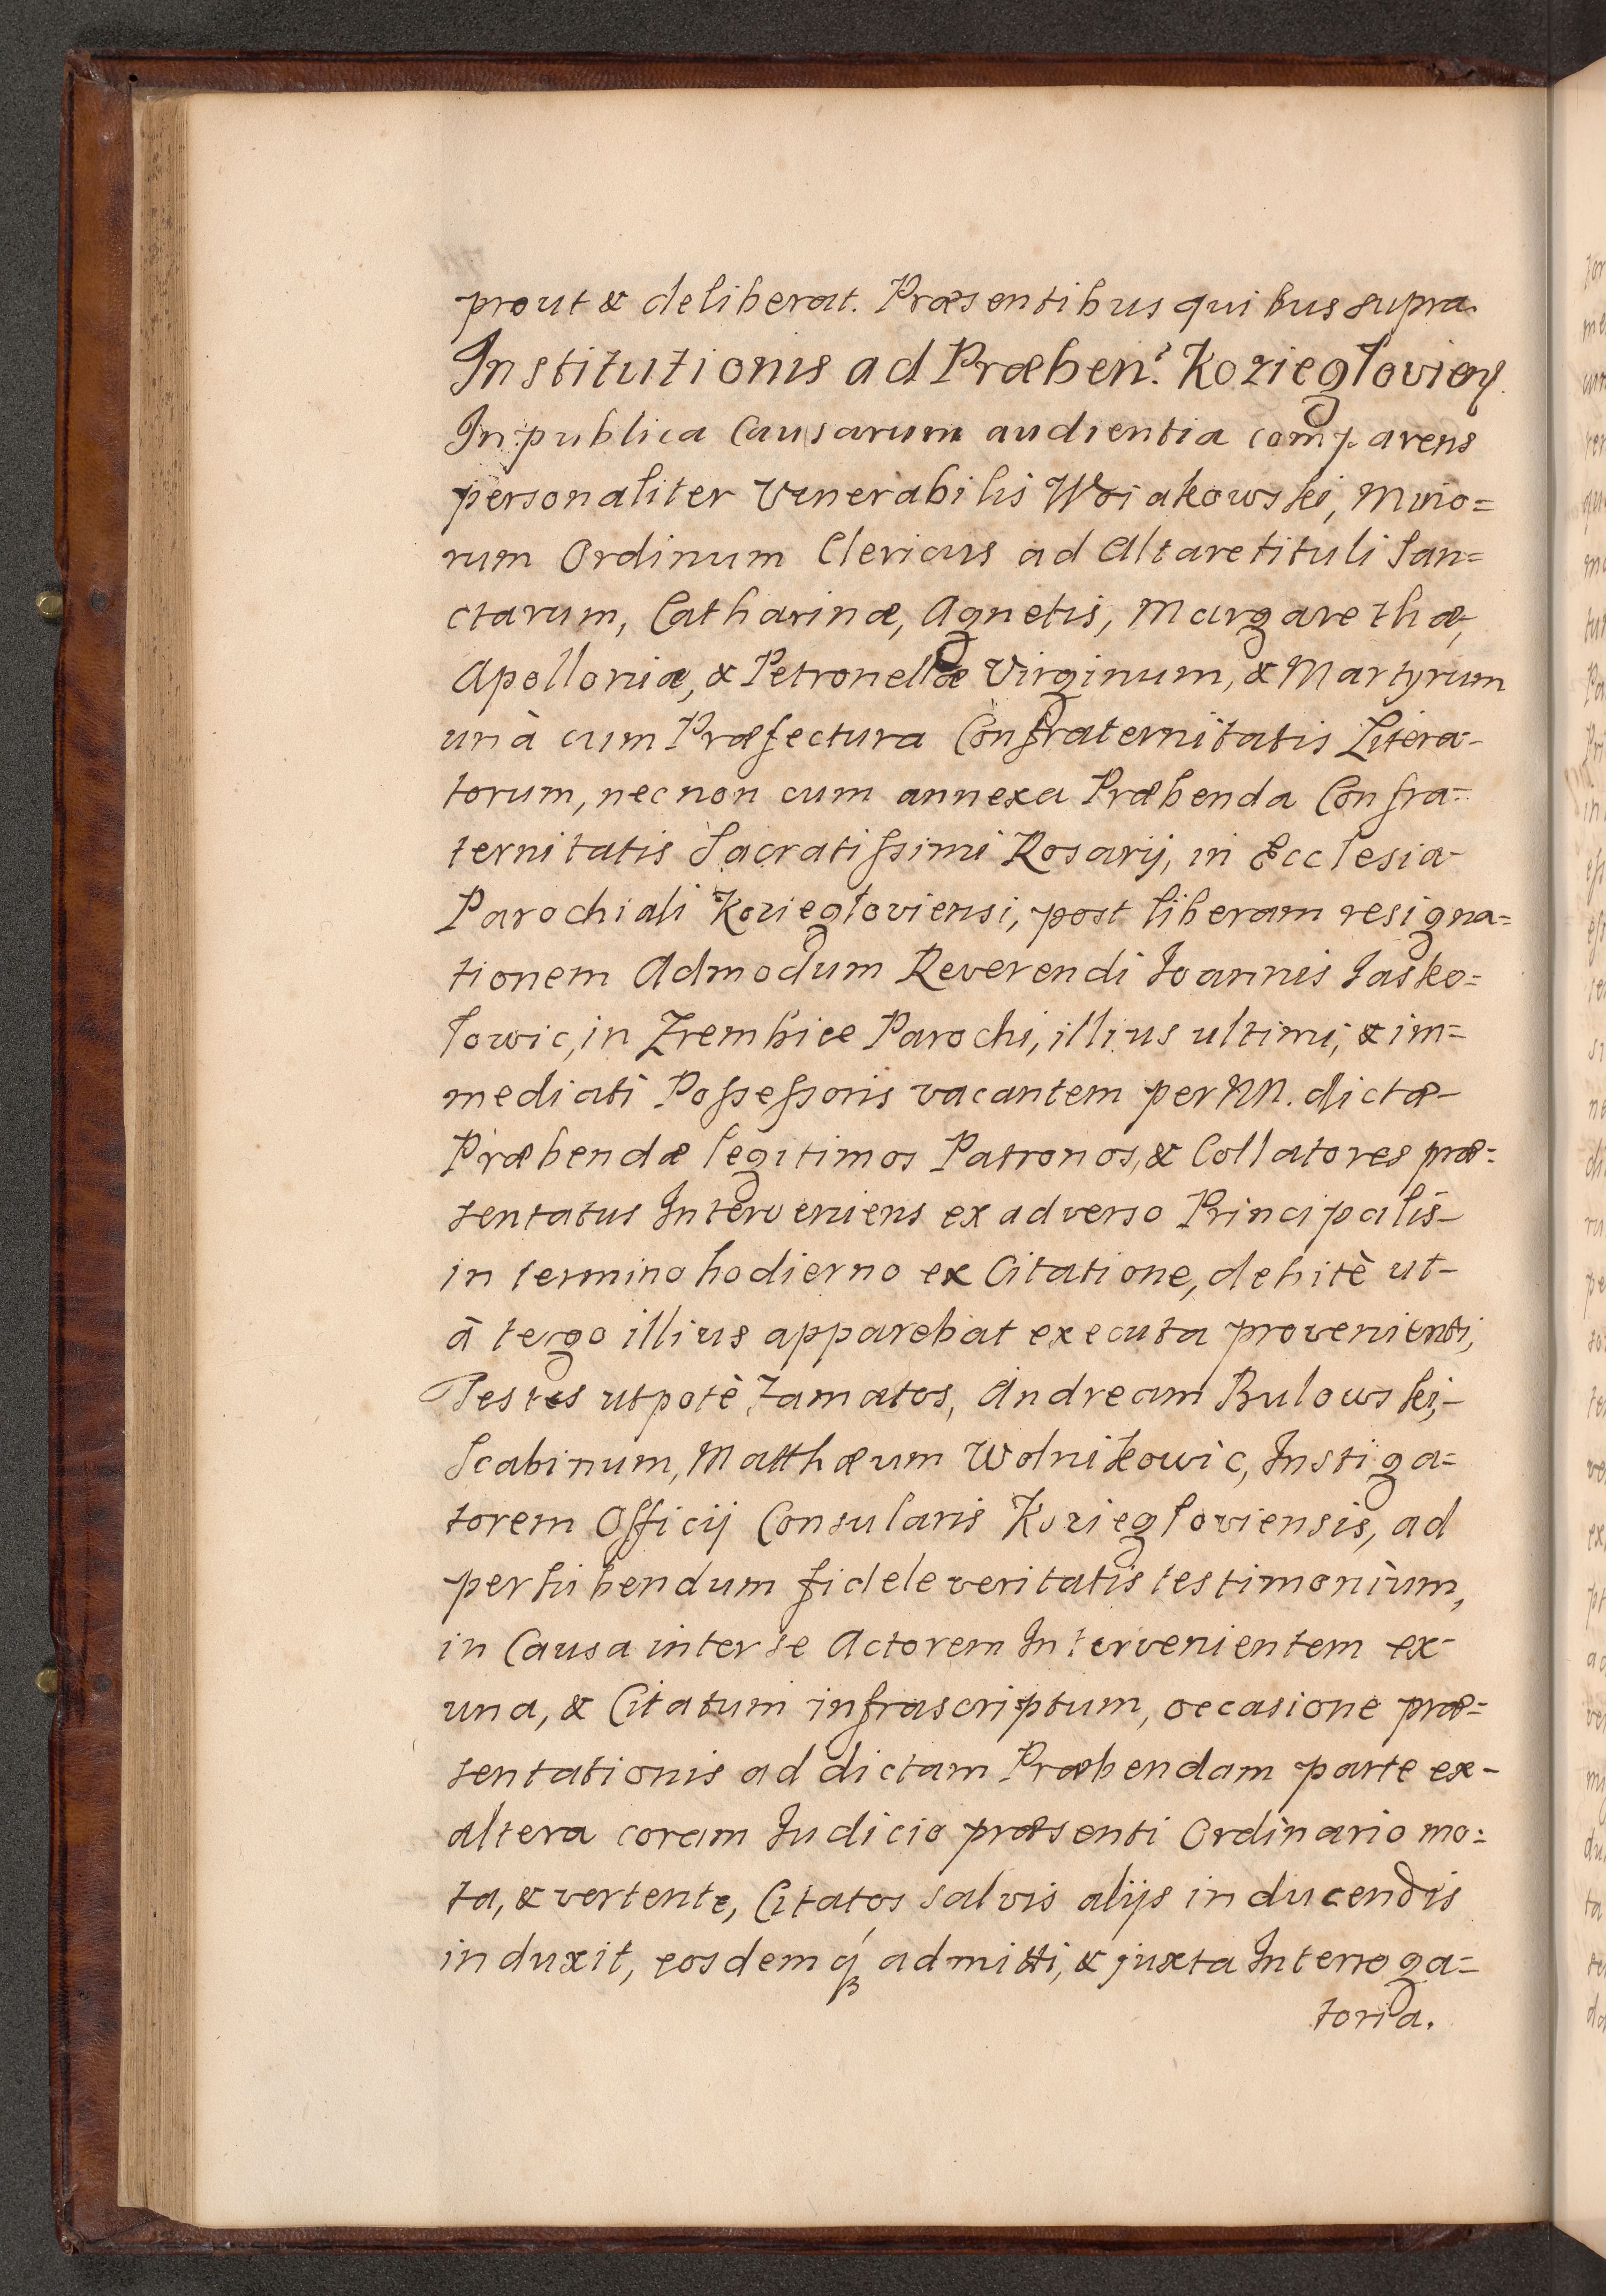 prout & deliberat. Præsentibus quibus supra.
Institutionis ad Præben: Koziegłovien
In publica Causarum audientia comparens
personaliter Venerabilis Woiakowski, Mino=
rum Ordinum Clericus ad Altare tituli San=
ctarum, Catharinæ, Agnetis, Margarethæ,
Apolloniæ, & Petronellæ Virginum, & Martyrum
unà cum Præfectura Confraternitatis Litera-
torum, nec non cum annexa Præbenda Confra=
ternitatis Sacratissimi Rosarij, in Ecclesia-
Parochiali Koziegłoviensi, post liberam resigna=
tionem Admodum Reverendi Joannis Jasko=
łowic, in Zrembice Parochi, illius ultimi, & im=
mediati Possessoris vacantem per NN. dictæ-
Præbendæ legitimos Patronos, & Collatores præ=
sentatus Interveniens ex adverso Principalis-
in termino hodierno ex Citatione, debitè ut-
à tergo illius apparebat executa provenienti,
Testes utpotè Famatos, Andream Bulowski,-
Scabinum, Matthæum Wolnikowic, Instiga=
torem Officij Consularis Koziegłoviensis, ad
perhibendum fidele veritatis testimonium,
in Causa inter se Actorem Intervenientem ex-
una, & Citatum infrascriptum, occasione præ=
sentationis ad dictam Præbendam parte ex-
altera coram Judicio præsenti Ordinario mo=
ta, & vertente, Citatos salvis alijs inducendis
induxit, eosdemq́ admitti, & juxta Interroga=
toria.